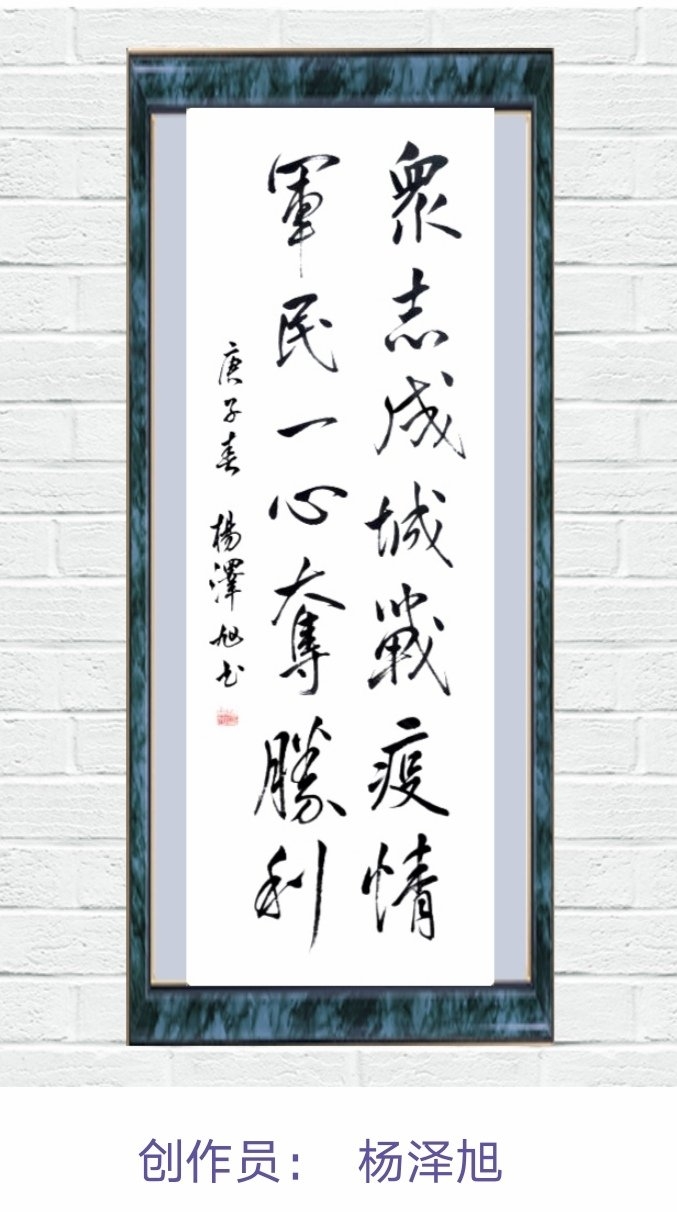 眾志成城戰疫情
軍民一心奪勝利
庚子春 楊澤旭书
创作员： 杨泽旭